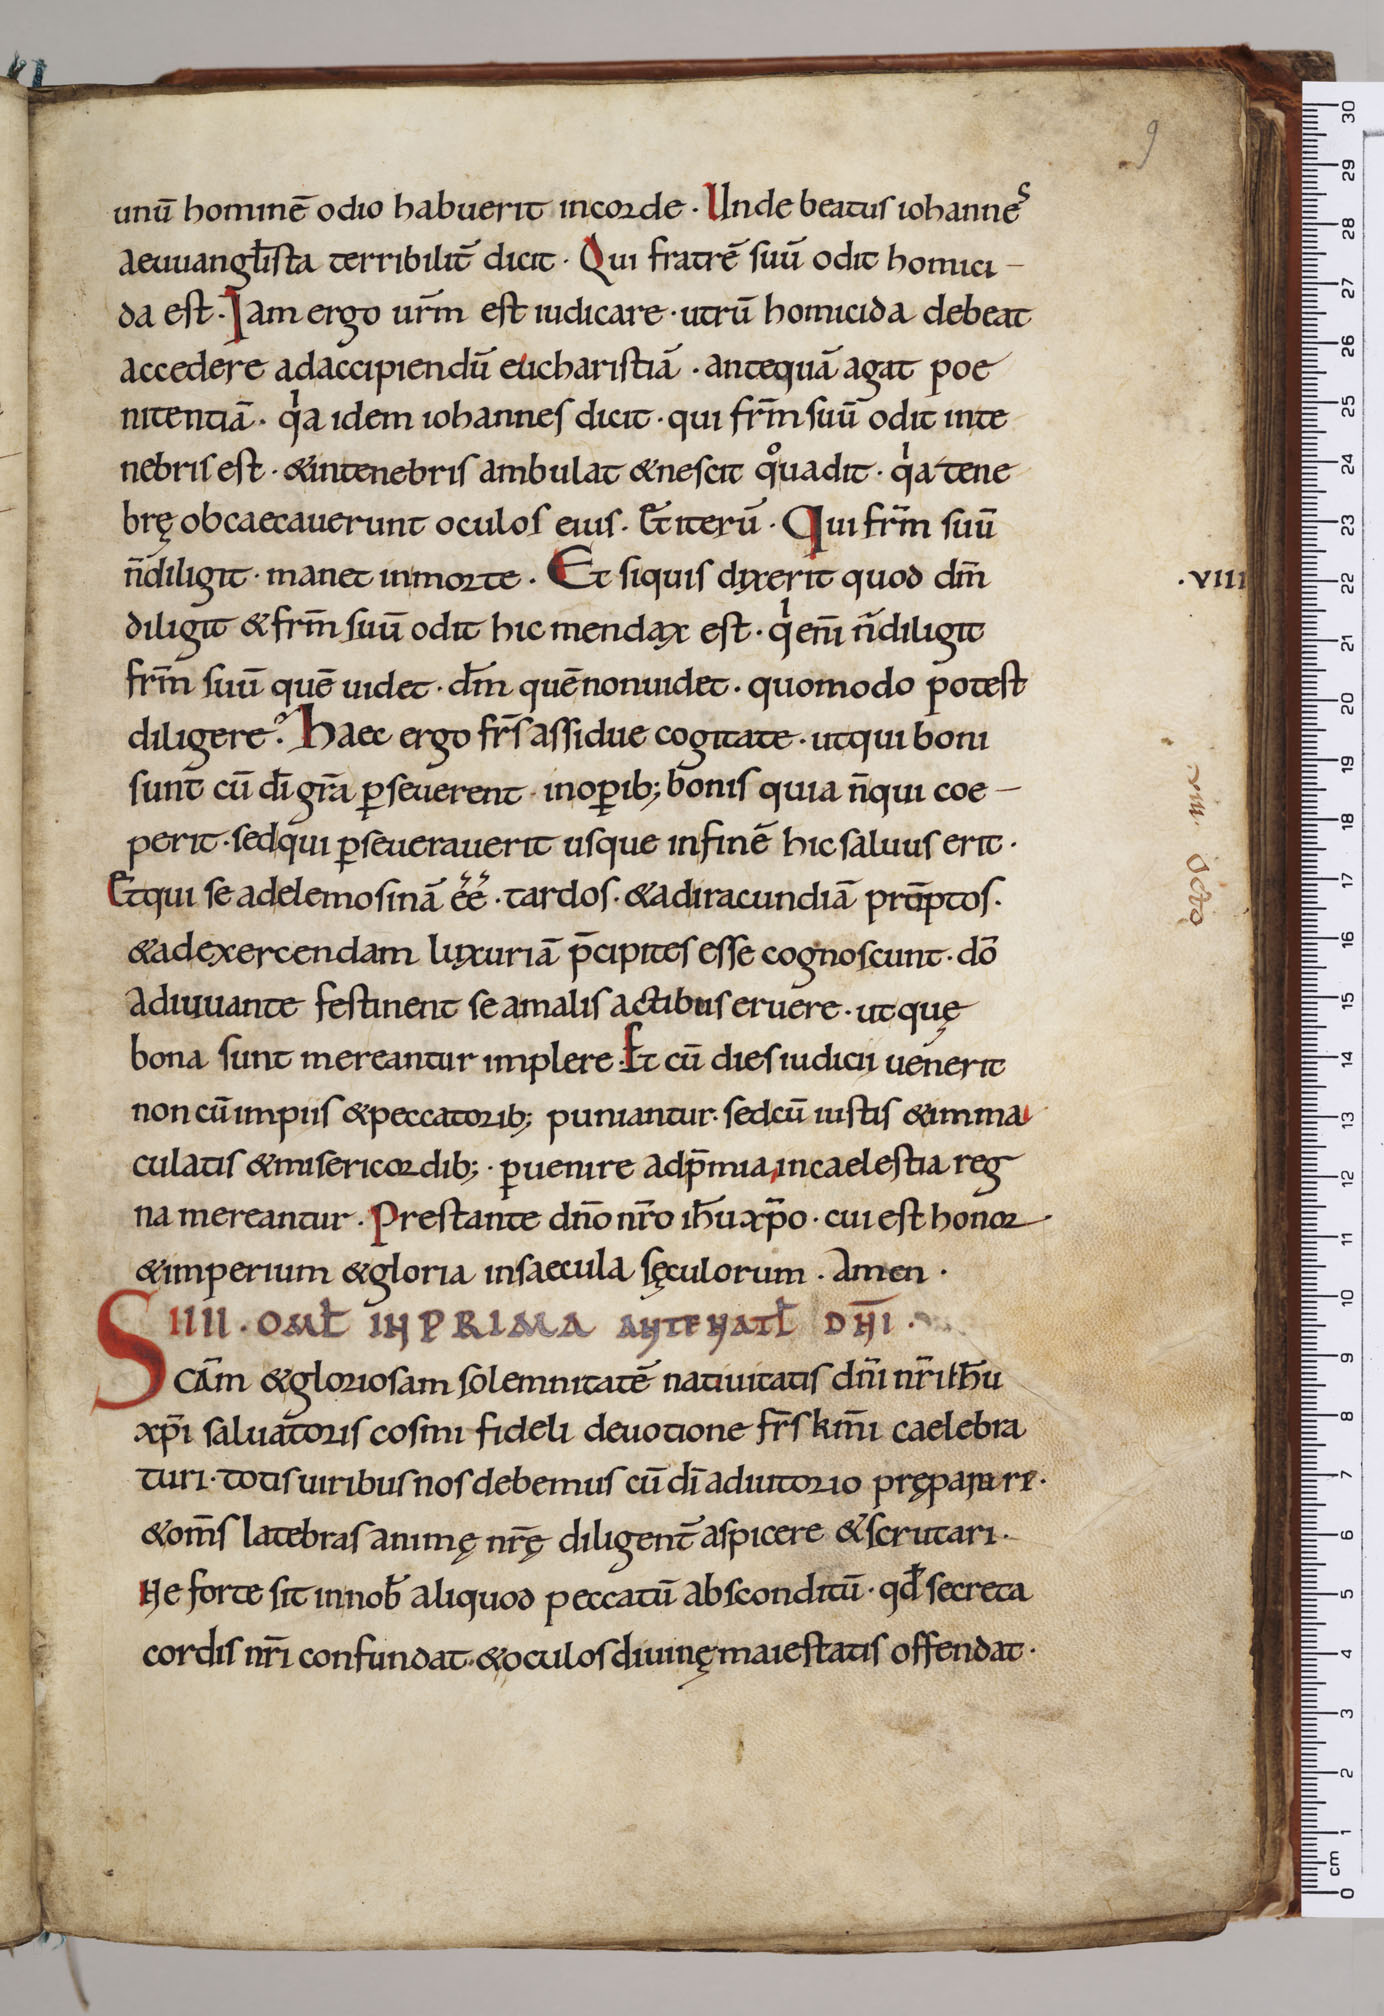 9
unū hominē odio habuerit incorde · Unde beatus iohannes
aeuuangl̄ista terribilit̄ dicit · Qui fratrē suū odit homici–
da est · Iam ergo ur̄m est iudicare · utrū homicida debeat
accedere adaccipiendū eucharistiā · antequā agat poe
nitentiā · qͥa idem iohannes dicit · qui fr̄m suū odit inte
nebris est · &intenebris ambulat &nescit qͦuadit · qͥa tene
brę obcaecauerunt oculos eius · Et iterū · Qui fr̄m suū
n̄diligit · manet inmorte · Et siquis dixerit quod dm̄
diligit & fr̄m suū odit hic mendax est · qͥ eni̅ n̄diligit
fr̄m suū quē uidet · dm̄ quēnonuidet · quomodo potest
diligere · Haec ergo fr̄s assidue cogitate · utqui boni
sunt cū dī gr̄a ꝑseuerent · inoꝑib; bonis quia n̄qui coe–
perit · sedqui ꝑseuerauerit usque infinē hic saluus erit ·
Etqui se adelemosinā ee · tardos · &adiracundiā prūptos ·
&adexercendam luxuriā p̄cipites esse cognoscunt · dō
adiuuante festinent se amalis actibus eruere · ut quę
bona sunt mereantur implere · Et cū dies iudicii uenerit
non cū impiis &peccatorib; puniantur · sedcū iustis &imma
culatis &misericordib; · ꝑuenire adp̄mia, incaelestia reg
na mereantur · Prestante dn̄o nr̄o ih̄u xp̄o · cui est honor ·
&imperium &gloria insaecula sęculorum · Amen ·
IIII · OML̄ IN PRIMA ANTE NATL̄ DN̄I ·
SCA̅m &gloriosam solemnitatē natiuitatis dn̄i nr̄i ih̄u
xp̄i saluatoris cosmi fideli deuotione fr̄s km̄i caelebra
turi · totis uiribus nos debemus cū dī adiutorio pręparare ·
&om̄s latebras animę nr̄ę diligent̄ aspicere &scrutari ·
Ne forte sit in nob̄ aliquod peccatū absconditū · qd̄ secreta
cordis nr̄i confundat · &oculos diuinę maiestatis offendat ·
· VIII
viii. octo